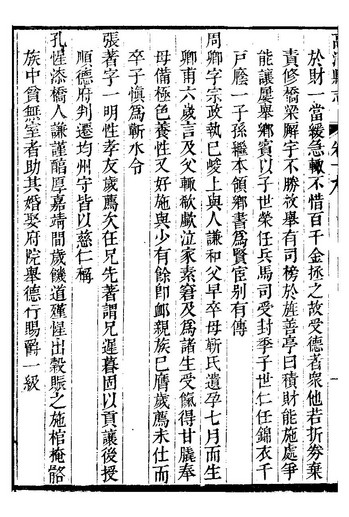 於財一當緩急輙不惜百千金拯之故受德者衆他若折券棄
責修橋梁解字不勝紋舉有司榜於旌善亭曰積財能施處爭
能讓屢舉鄉賓以子世榮任兵馬司受封季子世仁任錦衣千
戸廕一子孫繼本領鄉書爲賢宦别有傳
周卿字宗政執巳峻上與人謙和父早卒母靳氏遺孕七月而生
卿甫六歲言及父輙欷歔泣家素窘及爲諸生受餼得甘脆奉
母備極色養性又好施與少有餘卽䘏親族巳膺歲薦未仕而
卒子愼爲蘄水令
張著字一明性孝友歲薦次任兄先著謂兄遲暮固以貢讓後授
順德府判遷均州守皆以慈仁稱
孔惺漆橋人謙謹醕厚嘉靖間歲饑道殣惺出穀賑之施棺掩骼
族中貧無室者助其婚娶府院舉德行賜爵一級